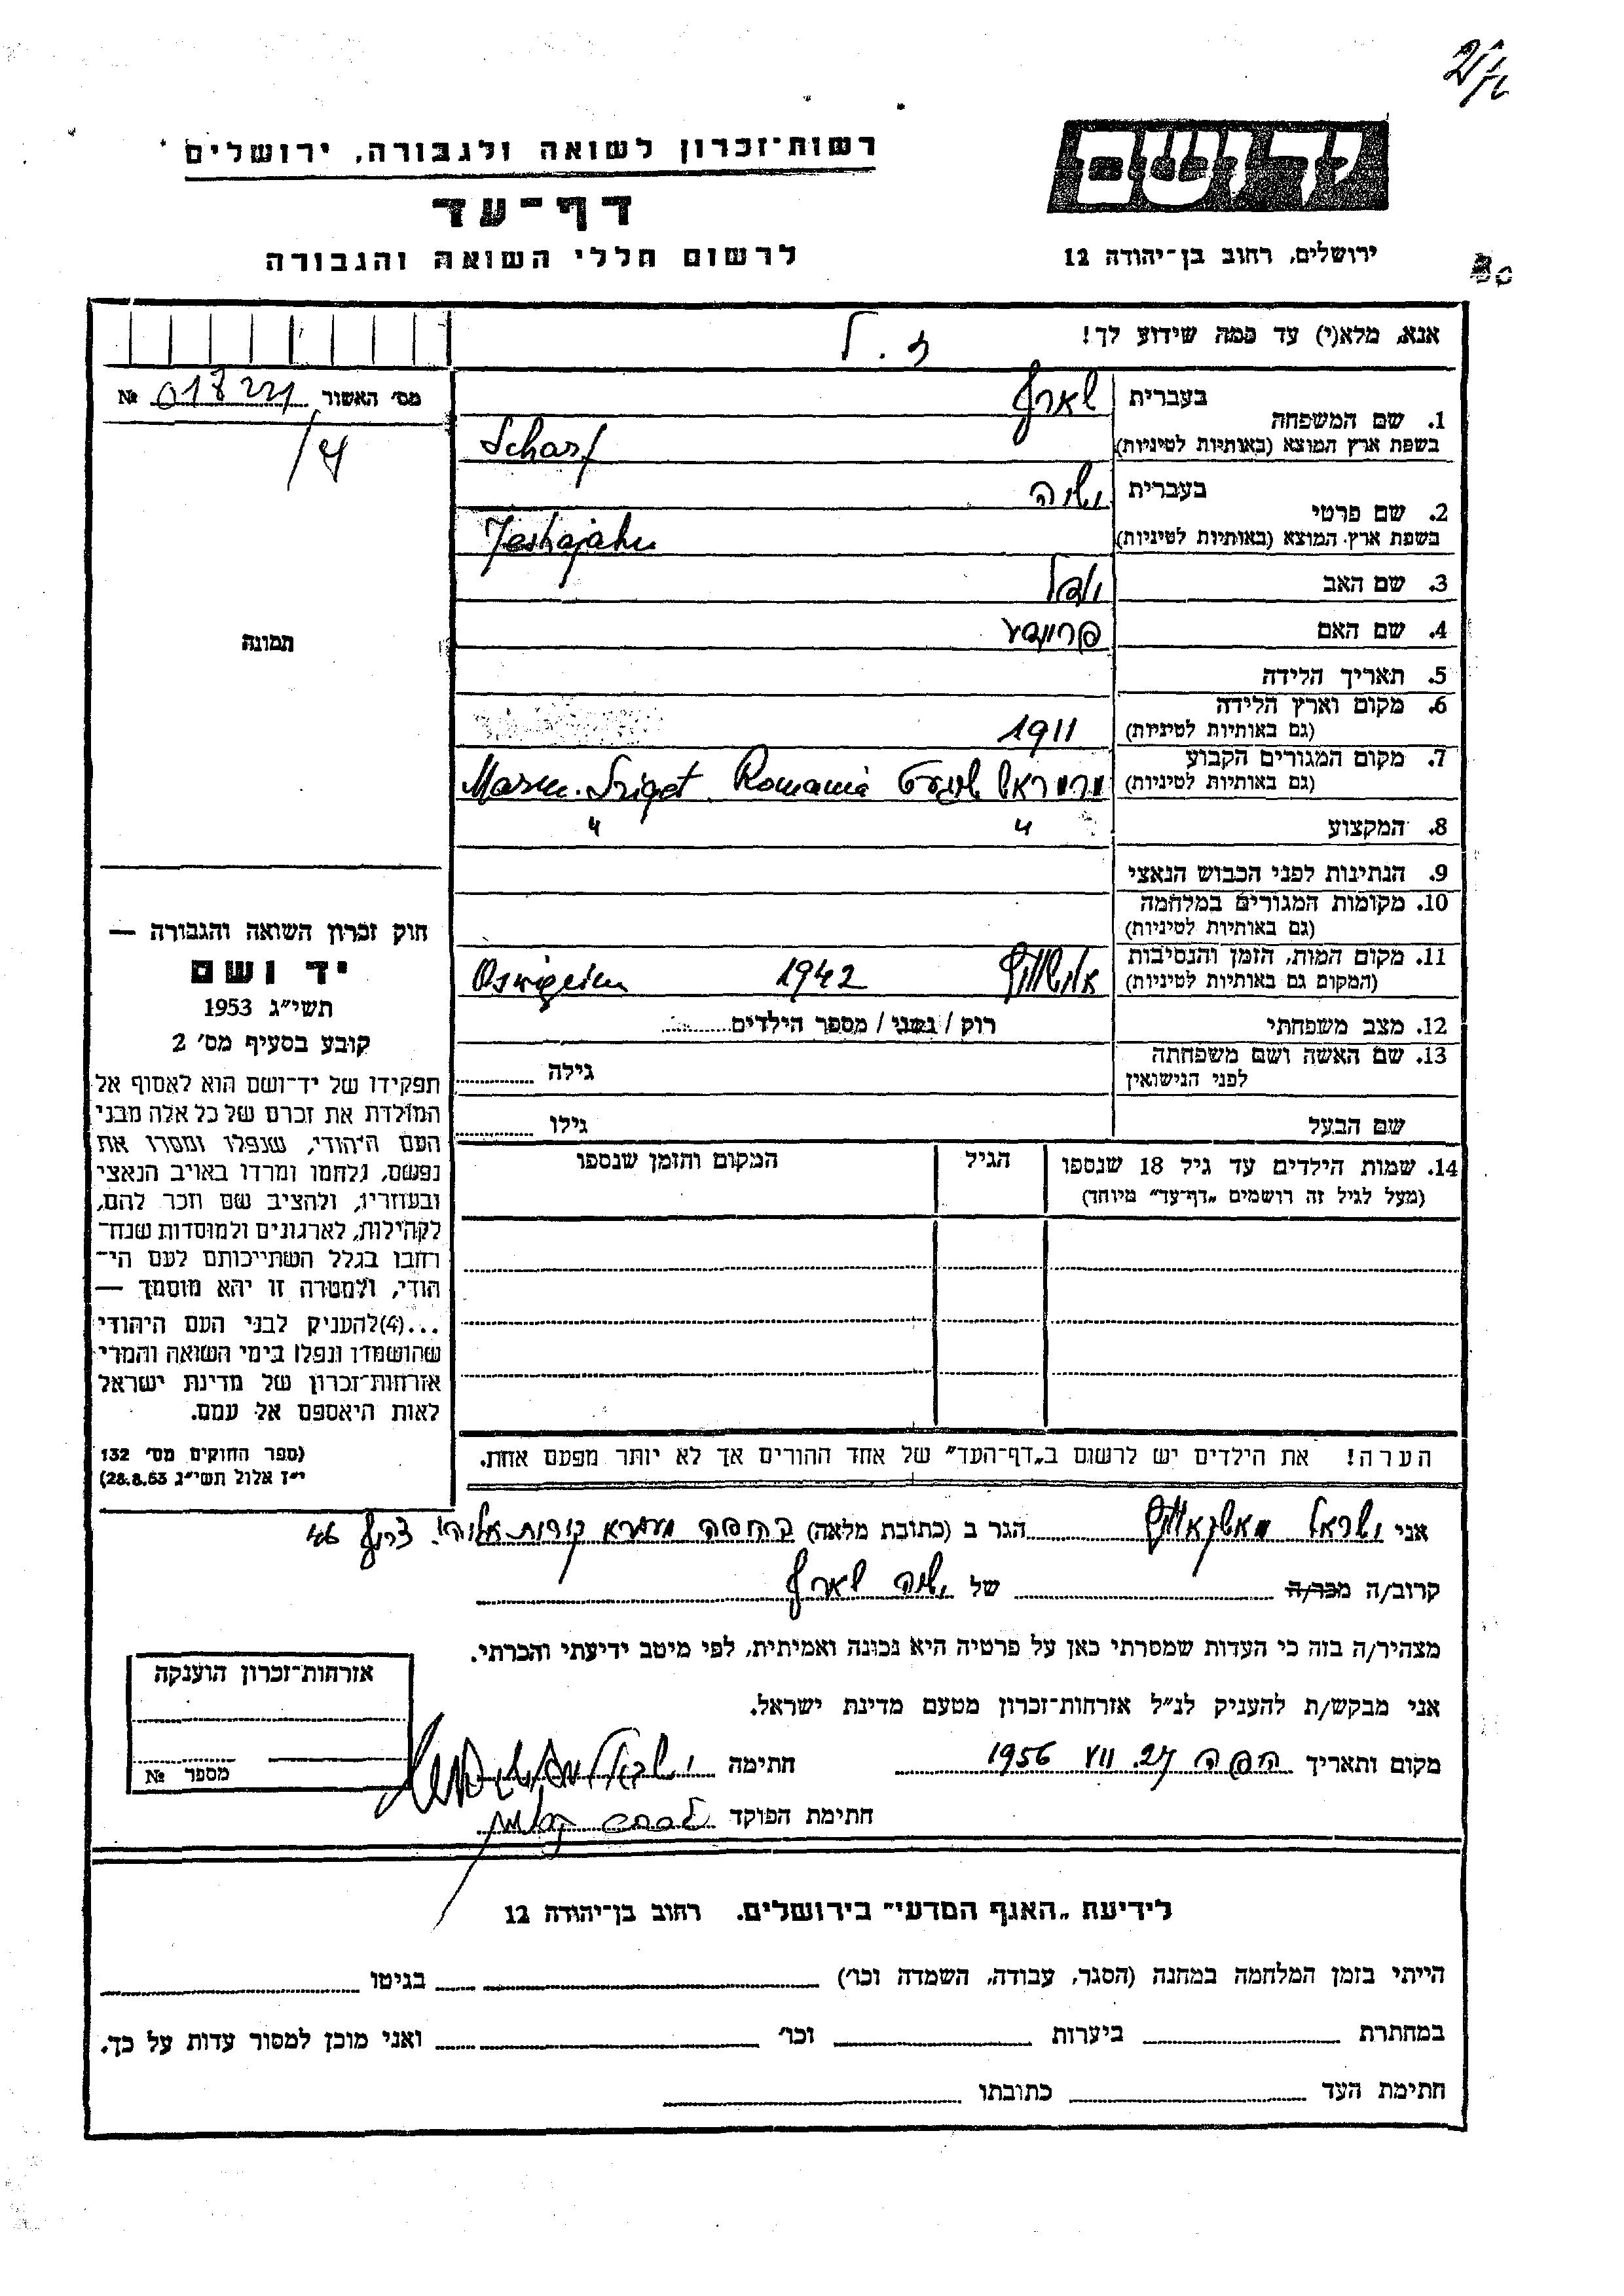 רשות־זכרון לשואה ולגבורה, ירושלים
דף־עד
לרשום חללי השואה והגבורה
יד ושם
ירושלים, רחוב בן־יהודה 12
אנא, מלא(י) עד כמה שידוע לך!
ז. ל
מס׳ האשור № 01822
1. שם המשפחה
בעברית שארף
בשפת ארץ המוצא (באותיות לטיניות) Scharf
2. שם פרטי
בעברית ישעיה
בשפת ארץ המוצא (באותיות לטיניות) Jeshajahu
3. שם האב
4. שם האם
5. תאריך הלידה
6. מקום וארץ הלידה
(גם באותיות לטיניות) 1911
7. מקום המגורים הקבוע
(גם באותיות לטיניות) Marm. Sziget Romania
8. המקצוע
9. הנתינות לפני הכבוש הנאצי
10. מקומות המגורים במלחמה
(גם באותיות לטיניות)
11. מקום המות, הזמן והנסיבות
(המקום גם באותיות לטיניות) אושוויץ 1942
12. מצב משפחתי רוק / נשוי / מספר הילדים
13. שם האשה ושם משפחתה
לפני הנישואין גילה
שם הבעל גילו
14. שמות הילדים עד גיל 18 שנספו הגיל המקום והזמן שנספו
(מעל לגיל זה רושמים „דף־עד״ מיוחד)
הערה! את הילדים יש לרשום ב„דף־העד״ של אחד ההורים אך לא יותר מפעם אחת.
תמונה
חוק זכרון השואה והגבורה —
יד ושם
תשי״ג 1953
קובע בסעיף מס׳ 2
תפקידו של יד־ושם הוא לאסוף אל
המולדת את זכרם של כל אלה מבני
העם היהודי, שנפלו ומסרו את
נפשם, נלחמו ומרדו באויב הנאצי
ובעוזריו, ולהציב שם וזכר להם,
לקהילות, לארגונים ולמוסדות שנח־
רחבו בגלל השתייכותם לעם הי־
הודי, ולמטרה זו יהא מוסמך —
...(4)להעניק לבני העם היהודי
שהושמדו ונפלו בימי השואה והמרי
אזרחות־זכרון של מדינת ישראל
לאות היאספם אל עמם.
(ספר החוקים מס׳ 132
י״ז אלול תשי״ג 28.8.53)
אני ישראל הגר ב (כתובת מלאה) 46
קרוב/ה מכר/ה של ישעיה שארף
מצהיר/ה בזה כי העדות שמסרתי כאן על פרטיה היא נכונה ואמיתית, לפי מיטב ידיעתי והכרתי.
אני מבקש/ת להעניק לנ״ל אזרחות־זכרון מטעם מדינת ישראל.
מקום ותאריך חיפה 27. VII 1956 חתימה
חתימת הפוקד
אזרחות־זכרון הוענקה
מספר №
לידיעת „האגף המדעי״ בירושלים. רחוב בן־יהודה 12
הייתי בזמן המלחמה במחנה (הסגר, עבודה, השמדה וכו׳) בגיטו
במחתרת ביערות וכו׳ ואני מוכן למסור עדות על כך.
חתימת העד כתובתו